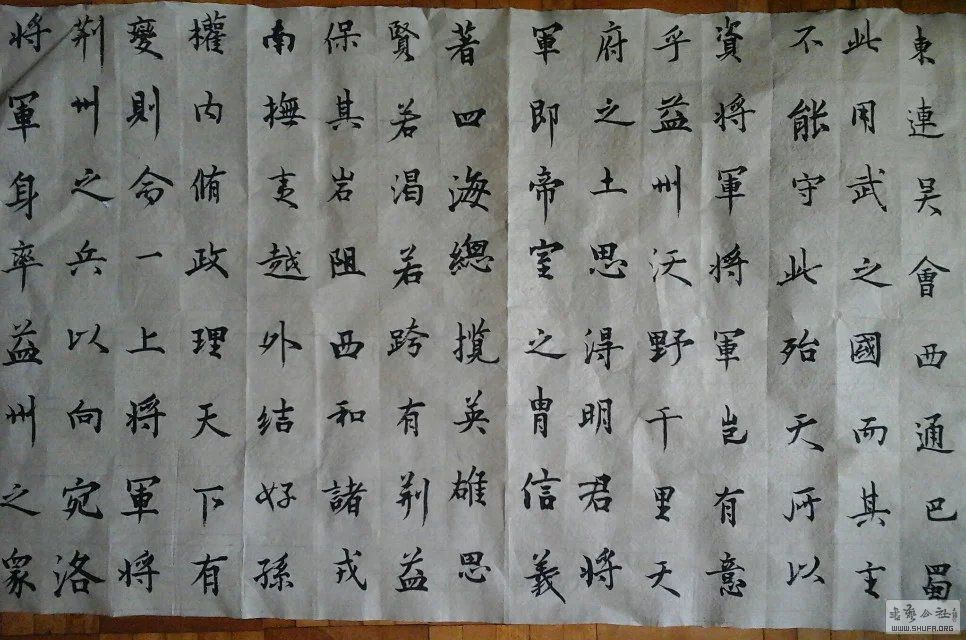 東連吳會西通巴蜀
此用武之國而其主
不能守此殆天所以
資將軍將軍豈有意
乎益州沃野千里天
府之土思得明君將
軍即帝室之胄信義
著四海總攬英雄思
賢若渴若跨有荊益
保其岩阻西和諸戎
南撫夷越外结好孫
權内脩政理天下有
變則命一上將軍將
荊州之兵以向宛洛
將軍身率益州之眾
書藝公社
WWW.SHUFA.ORG